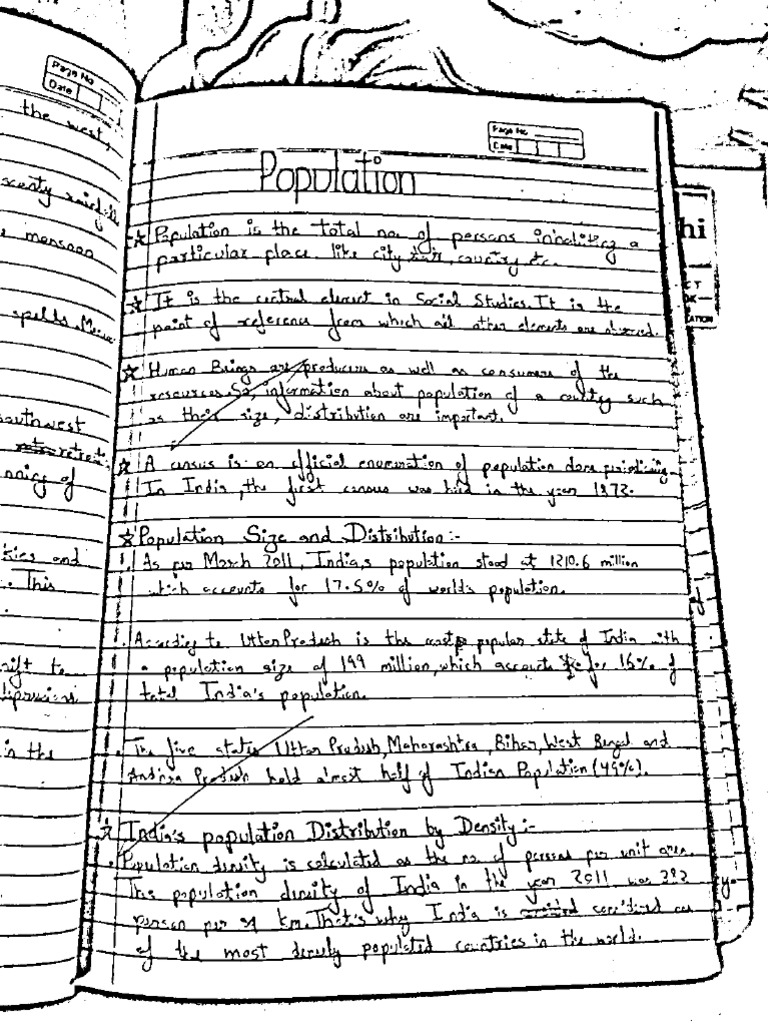 Page No.
Date
the west,
scanty rainfall
monsoon
spells. 
southwest
retreat
of
and
This
to
in the
Page No.
Date
Population
☆ Population is the total no. of persons inhabiting a
particular place like city, country etc.
☆ It is the central element in Social Studies. It is the
point of reference from which all other elements are observed.
☆ Human Beings are producers as well as consumers of the
resources. So, information about population of a country such
as their size, distribution are important.
☆ A census is an official enumeration of population done periodically.
In India, the first census was held in the year 1872.
☆ Population Size and Distribution:-
. As per March 2011, India's population stood at 1210.6 million
which accounts for 17.5% of world's population.
. According to Uttar Pradesh is the most popular state of India with
a population size of 199 million, which accounts for 16% of
total India's population.
. The five states Uttar Pradesh, Maharashtra, Bihar, West Bengal and
Andhra Pradesh hold almost half of Indian Population (49%).
☆ India's population Distribution by Density:-
. Population density is calculated as the no. of persons per unit area.
The population density of India in the year 2011 was 382
person per sq km. That's why India is considered as
of the most densely populated countries in the world.
hi
of
y.